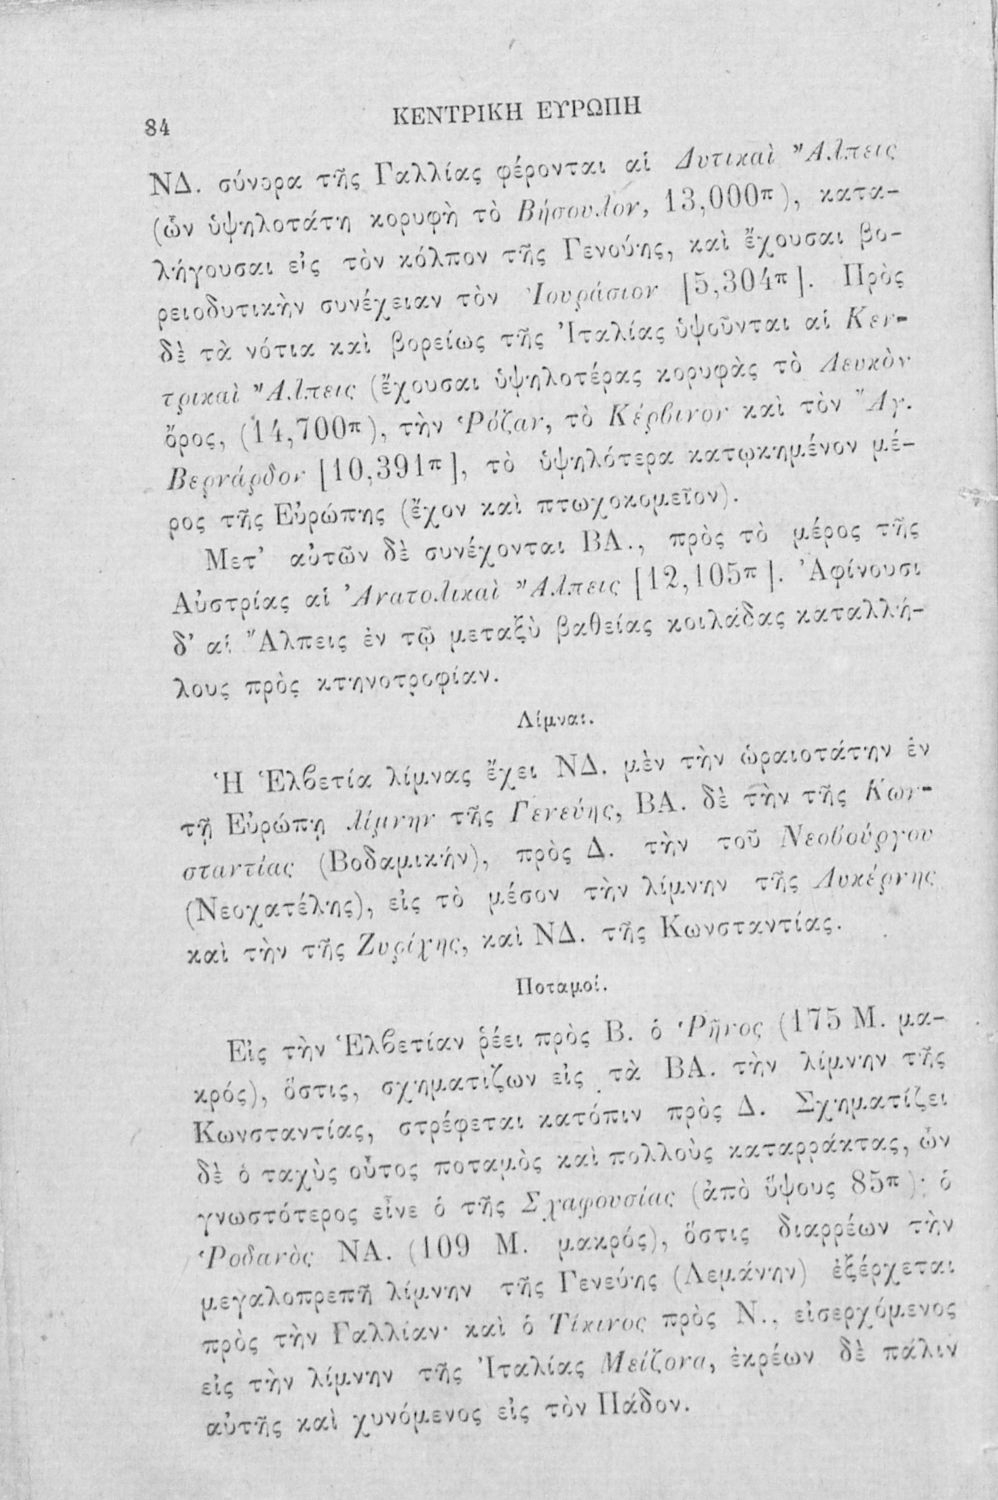 84
ΚΕΝΤΡΙΚΗ ΕΥΡΩΠΗ
ΝΔ. σύνορα τῆς Γαλλίας φέρονται αἱ Δυτικαὶ Ἄλπεις
(ὧν ὑψηλοτάτη κορυφὴ τὸ Βήσουλον, 13,000π), κατα-
λήγουσαι εἰς τὸν κόλπον τῆς Γενούης, καὶ ἔχουσαι βο-
ρειοδυτικὴν συνέχειαν τὸν Ἰουράσιον [5,304π]. Πρὸς
δὲ τὰ νότια καὶ βορείως τῆς Ἰταλίας ὑψοῦνται αἱ Κεν-
τρικαὶ Ἄλπεις (ἔχουσαι ὑψηλοτέρας κορυφὰς τὸ Λευκὸν
ὄρος, (14,700π), τὴν Ῥόζαν, τὸ Κέρβινον καὶ τὸν Ἅγ.
Βερνάρδον [10,391π], τὸ ὑψηλότερα κατῳκημένον μέ-
ρος τῆς Εὐρώπης (ἔχον καὶ πτωχοκομεῖον).
Μετ' αὐτῶν δὲ συνέχονται ΒΑ., πρὸς τὸ μέρος τῆς
Αὐστρίας αἱ Ἀνατολικαὶ Ἄλπεις [12,105π]. Ἀφίνουσι
δ' αἱ Ἄλπεις ἐν τῷ μεταξὺ βαθείας κοιλάδας καταλλή-
λους πρὸς κτηνοτροφίαν.
Λίμναι.
Ἡ Ἑλβετία λίμνας ἔχει ΝΔ. μὲν τὴν ὡραιοτάτην ἐν
τῇ Εὐρώπῃ λίμνην τῆς Γενεύης, ΒΑ. δὲ τὴν τῆς Κων-
σταντίας (Βοδαμικήν), πρὸς Δ. τὴν τοῦ Νεοβούργου
(Νεοχατέλης), εἰς τὸ μέσον τὴν λίμνην τῆς Λυκέρνης
καὶ τὴν τῆς Ζυρίχης, καὶ ΝΔ. τῆς Κωνσταντίας.
Ποταμοί.
Εἰς τὴν Ἑλβετίαν ῥέει πρὸς Β. ὁ Ῥῆνος (175 Μ. μα-
κρός), ὅστις, σχηματίζων εἰς τὰ ΒΑ. τὴν λίμνην τῆς
Κωνσταντίας, στρέφεται κατόπιν πρὸς Δ. Σχηματίζει
δὲ ὁ ταχὺς οὗτος ποταμὸς καὶ πολλοὺς καταρράκτας, ὧν
γνωστότερος εἶνε ὁ τῆς Σχαφουσίας (ἀπὸ ὕψους 85π)· ὁ
Ῥοδανὸς ΝΑ. (109 Μ. μακρός), ὅστις διαρρέων τὴν
μεγαλοπρεπῆ λίμνην τῆς Γενεύης (Λεμάνην) ἐξέρχεται
πρὸς τὴν Γαλλίαν· καὶ ὁ Τίκινος πρὸς Ν., εἰσερχόμενος
εἰς τὴν λίμνην τῆς Ἰταλίας Μείζονα, ἐκρέων δὲ πάλιν
αὐτῆς καὶ χυνόμενος εἰς τὸν Πάδον.